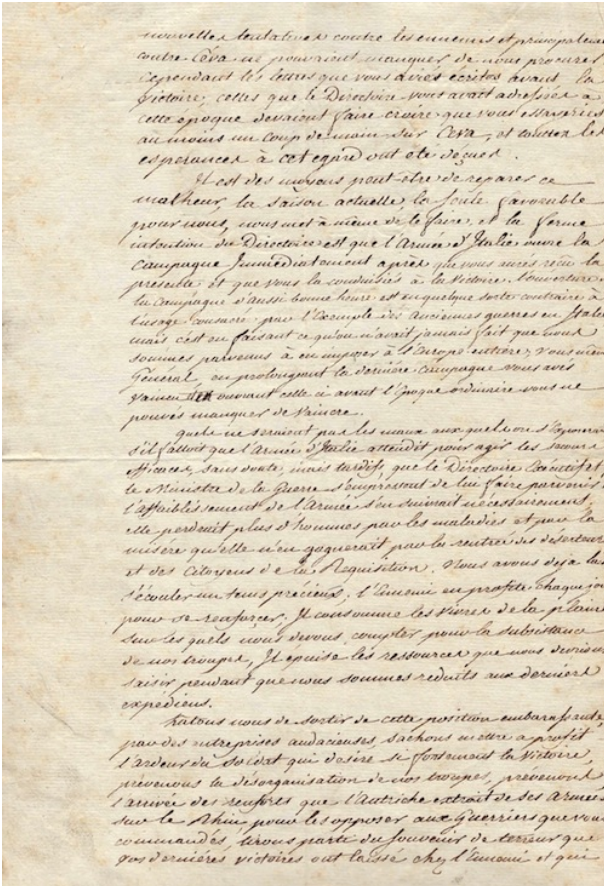 nouvelles tentatives contre les ennemis et principalement
contre Céva ne pouvaient manquer de nous procurer
cependant les lettres que vous aviés écrites avant la
victoire, celles que le Directoire vous avait adressées à
cette époque devaient faire croire que vous essayeriés
au moins un coup de main sur Ceva, et toutes les
esperances à cet égard ont été déçues.
Il est des moyens peut-être de reparer ce
malheur, la saison actuelle, la seule favorable
pour nous, nous met à même de le faire, et la ferme
intention du Directoire est que l'Armée d'Italie ouvre la
campagne Immédiatement après que vous aurés reçu la
presente et que vous la conduisiés à la Victoire. l'ouverture
la campagne d'aussi bonne heure est en quelque sorte contraire à
l'usage consacré par l'Exemple des anciennes guerres en Italie
mais c'est en faisant ce qu'on n'avait jamais fait que nous
sommes parvenus à en imposer à l'Europe entiere, vous même
Général, en prolongeant la derniére campagne vous avés
vaincu ouvrant celle ci avant l'époque ordinaire vous ne
pouvés manquer de vaincre.
quels ne seraient pas les maux aux quels on s'exposerai
s'il falloit que l'Armée d'Italie attendit pour agir les secours
efficaces, sans doute, mais tardifs que le Directoire Exécutif et
le Ministre de la Guerre s'empressent de lui faire parvenir.
l'affaiblissement de l'Armée s'en suivrait nécessairement.
elle perdrait plus d'hommes par les maladies et par la
misére qu'elle n'en gagnerait par la rentrée des deserteurs
et des Citoyens de la Requisition. Nous avons déja la
s'écouler un tems précieux. l'Ennemi en profite chaque jo
pour se renforcer. Il consomme les vivres de la plaine
sur les quels nous devons compter pour la subsistance
de nos troupes, Il épuise les ressources que nous devrions
saisir pendant que nous sommes reduits aux derniers
expédiens.
hatons nous de sortir de cette position embarassante,
par des entreprises audacieuses, sachons mettre à profit
l'ardeur du soldat qui desire si fortement la victoire,
prévenons la désorganisation de nos troupes, prévenons
l'arrivée des renforts que l'Autriche extrait de ses Armées
sur le Rhin pour les opposer aux Guerriers que vous
commandés, tirons parti du souvenir de terreur que
vos derniéres victoires ont laissé chez l'Ennemi et qui